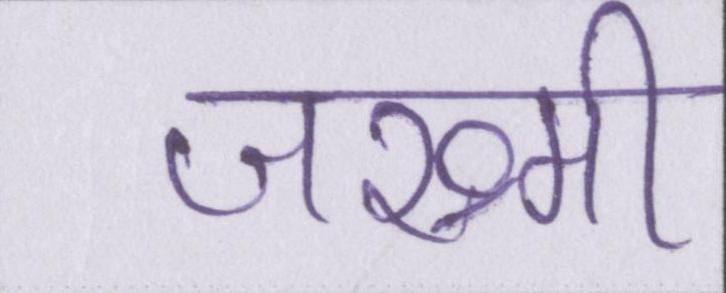 जख्मी